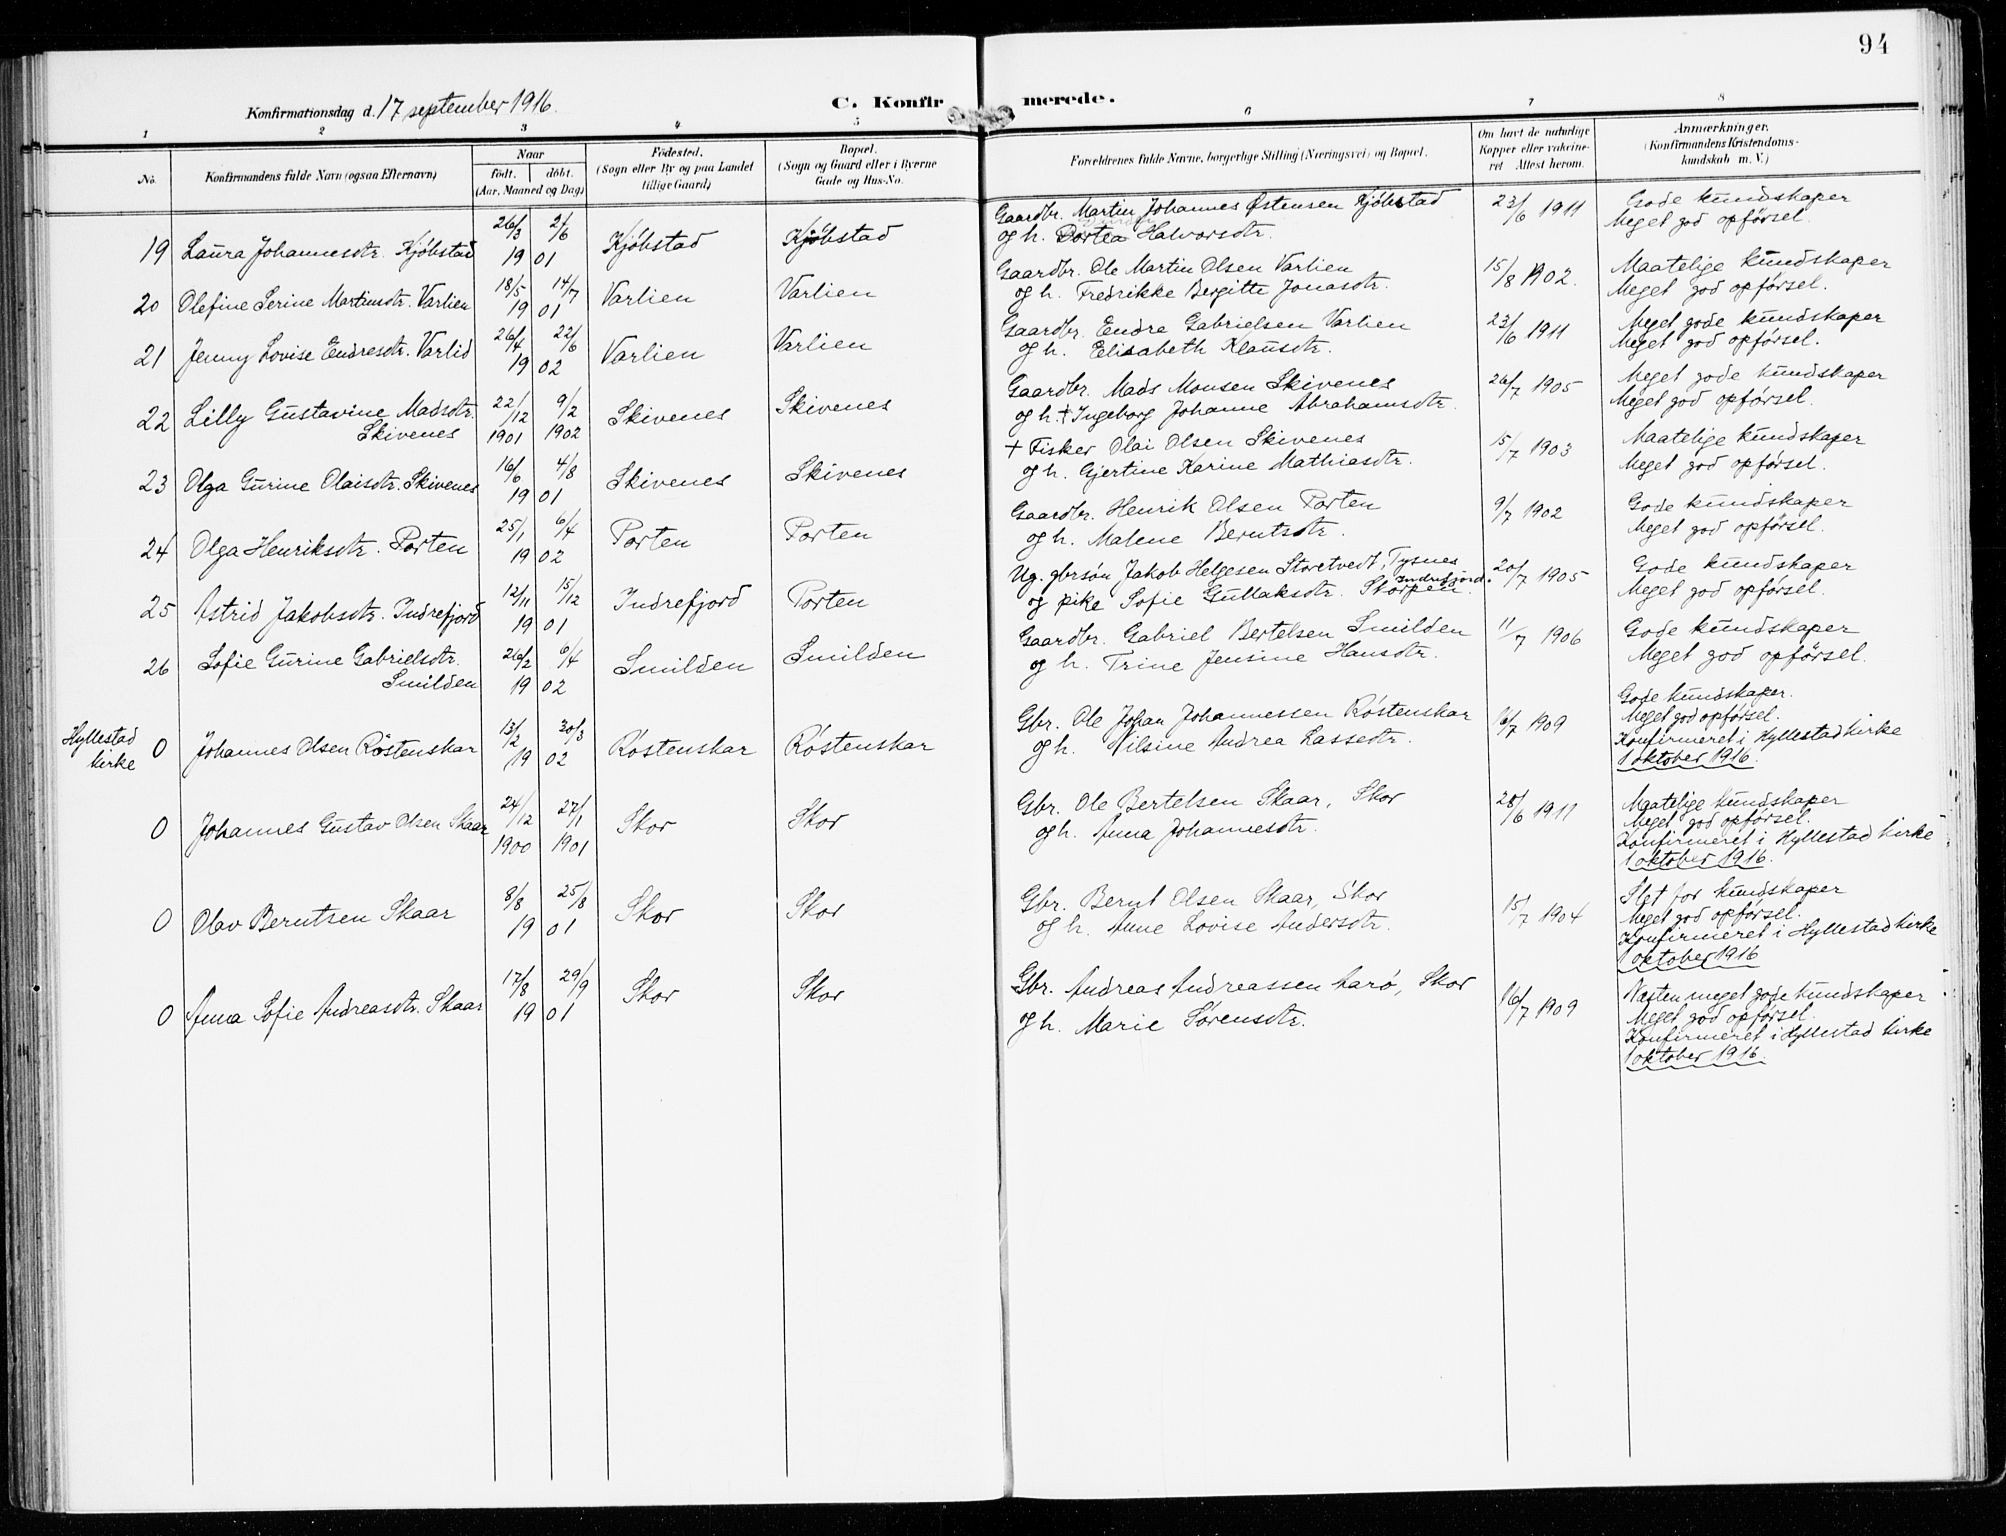 94
Konfirmationsdag d. 17 september 1916.
C. Konfirmerede.
1 2 3 4 5 6 7 8
No. Konfirmandens fulde Navn (ogsaa Efternavn) Naar født. døbt. (Aar, Maaned og Dag) Fødested. (Sogn eller By og paa Landet tillige Gaard) Bopæl. (Sogn og Gaard eller i Byerne Gade og Hus-No. Forældrenes fulde Navne, borgerlige Stilling (Næringsvei) og Bopæl. Om havt de naturlige Kopper eller vakcineret Attest herom. Anmærkninger. (Konfirmandens Kristendomskundskab m. V.)
19 Laura Johannesdtr. Kjøbstad 26/3 2/6 1901 Kjøbstad Kjøbstad Gaardbr. Martin Johannes Østensen Kjøbstad 23/6 1911 Gode kundskaper
og h. Dortea Halvorsdtr. Meget god opførsel
20 Olefine Serine Martinsdtr. Varlien 18/5 14/7 1901 Varlien Varlien Gaardbr. Ole Martin Olsen Varlien 15/8 1902. Maatelige kundskaper
og h. Fredrikke Bergitte Jonasdtr. Meget god opførsel.
21 Jenny Lovise Endresdtr. Varlid 26/4 22/6 1902 Varlien Varlien Gaardbr. Endre Gabrielsen Varlien 23/6 1911 Meget gode kundskaper
og h. Elisabeth Klausdtr. Meget god opførsel.
22 Lilly Gustavine Madsdtr. Skivenes 22/12 1901 9/2 1902 Skivenes Skivenes Gaardbr. Mads Monsen Skivenes 26/7 1905 Meget gode kundskaper
og h. + Ingeborg Johanne Abrahamsdtr. Meget god opførsel.
23 Olga Gurine Olaisdtr. Skivenes 16/6 4/8 1901 Skivenes Skivenes + Fisker Olai Olsen Skivenes 15/7 1903 Maatelige kundskaper
og h. Gjertine Karine Mathiasdtr. Meget god opførsel.
24 Olga Henriksdtr. Porten 25/1 6/4 1902 Porten Porten Gaardbr. Henrik Olsen Porten 9/7 1902 Gode kundskaper
og h. Malene Berntsdtr. Meget god opførsel.
25 Astrid Jakobsdtr. Indrefjord 12/11 15/12 1901 Indrefjord Porten Ug. gbrsøn Jakob Helgesen Storetvedt, Tysnes 20/7 1905 Gode kundskaper
og pike Sofie Gullaksdtr. Indrefjord. Meget god opførsel.
26 Sofie Gurine Gabrielsdtr. Smilden 26/2 6/4 1902 Smilden Smilden Gaardbr. Gabriel Bertelsen Smilden 11/7 1906 Gode kundskaper
og h. Trine Jensine Hansdtr. Meget god opførsel.
Hyllestad kirke 0 Johannes Olsen Røstenskar 13/2 30/3 1902 Røstenskar Røstenskar Gbr. Ole Johan Johannessen Røstenskar 16/7 1909 Gode kundskaper.
og h. Nilsine Andrea Lassedtr. Meget god opførsel.
Konfirmeret i Hyllestad kirke
1 oktober 1916.
0 Johannes Gustav Olsen Skaar 24/12 1900 27/1 1901 Skor Skor Gbr. Ole Bertelsen Skaar, Skor 28/6 1911 Maatelige kundskaper
og h. Anna Johannesdtr. Meget god opførsel.
Konfirmeret i Hyllestad kirke
1 oktober 1916.
0 Olav Berntsen Skaar 8/8 25/8 1901 Skor Skor Gbr. Bernt Olsen Skaar, Skor 15/7 1904 Slet for kundskaper
og h. Anne Lovise Andersdtr. Meget god opførsel.
Konfirmeret i Hyllestad kirke
1 oktober 1916
0 Anna Sofie Andreasdtr. Skaar 17/8 29/9 1901 Skor Skor Gbr. Andreas Andreassen Aarø, Skor 16/7 1909 Næsten meget gode kundskaper
og h. Marie Sørensdtr. Meget god opførsel.
Konfirmeret i Hyllestad kirke
1 oktober 1916.